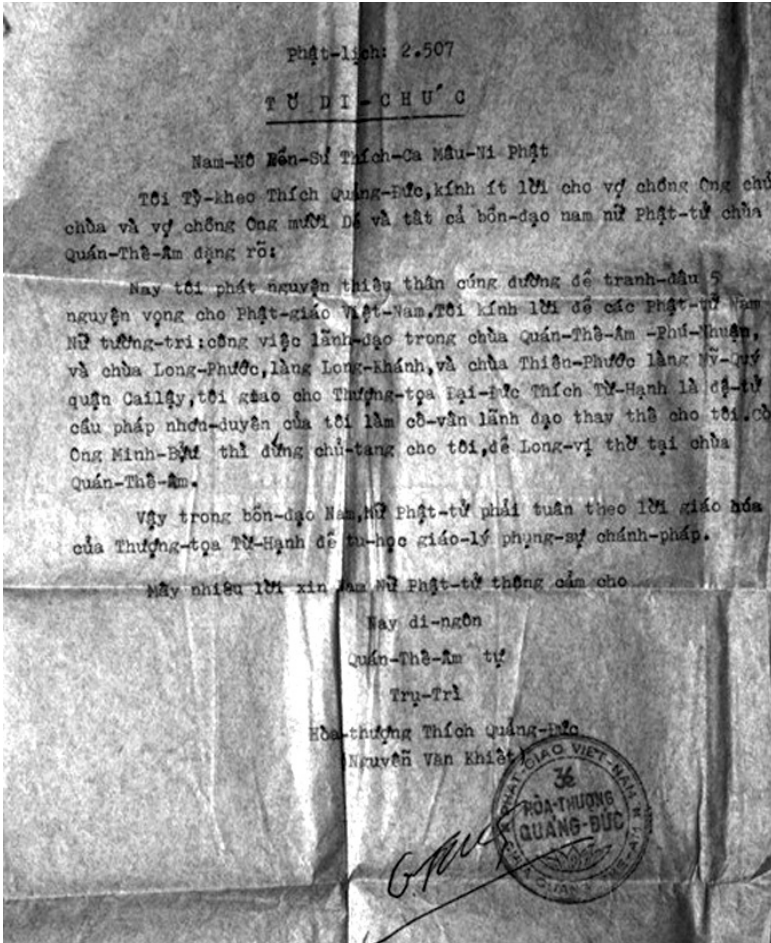 Phật-lịch: 2.507
TỜ DI-CHÚC
Nam-Mô Bổn-Sư Thích-Ca Mâu-Ni Phật
Tôi Tỳ-kheo Thích Quảng-Đức,kính ít lời cho vợ chồng Ông chủ
chùa và vợ chồng Ông mười Dé và tất cả bổn-đạo nam nữ Phật-tử chùa
Quán-Thế-Âm đặng rõ:
Nay tôi phát nguyện thiêu thân cúng dường để tranh-đấu 5
nguyện vọng cho Phật-giáo Việt-Nam.Tôi kính lời để các Phật-tử Nam
Nữ tường-tri:công việc lãnh-đạo trong chùa Quán-Thế-Âm -Phú-Nhuận,
và chùa Long-Phước,làng Long-Khánh,và chùa Thiên-Phước làng Mỹ-Quý
quận Cailậy,tôi giao cho Thượng-tọa Đại-Đức Thích Từ-Hạnh là đệ-tử
cầu pháp nhơn-duyên của tôi làm cố-vấn lãnh đạo thay thế cho tôi.Cò
Ông Minh-Bửu thì đứng chủ-tang cho tôi,để Long-vị thờ tại chùa
Quán-Thế-Âm.
Vậy trong bổn-đạo Nam,Nữ Phật-tử phải tuân theo lời giáo hóa
của Thượng-tọa Từ-Hạnh để tu-học giáo-lý phụng-sự chánh-pháp.
Mấy nhiêu lời xin Nam Nữ Phật-tử thông cảm cho
Nay di-ngôn
Quán-Thế-Âm tự
Trụ-Trì
Hòa-thượng Thích Quảng-Đức
(Nguyễn Văn Khiết)
PHẬT-GIÁO VIỆT-NAM
HÒA-THƯỢNG
QUẢNG-ĐỨC